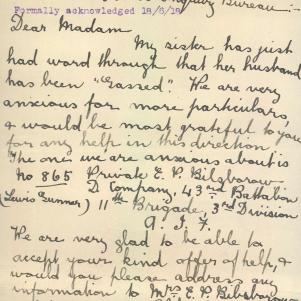 Enquiry Bureau :-
Formally acknowledged 18/6/18
Dear Madam
My sister has just
had word through that her husband
has been "Gassed". We are very
anxious for more particulars,
& would be most grateful to you
for any help in this direction
The one we are anxious about is
no 865 Private E. P. Bilsborow
D Company, 43rd Battalion
(Lewis Gunner) 11th Brigade, 3rd Division
A. I. F.
We are very glad to be able to
accept your kind offer of help, &
would you please address any
information to Mrs E. P. Bilsborow